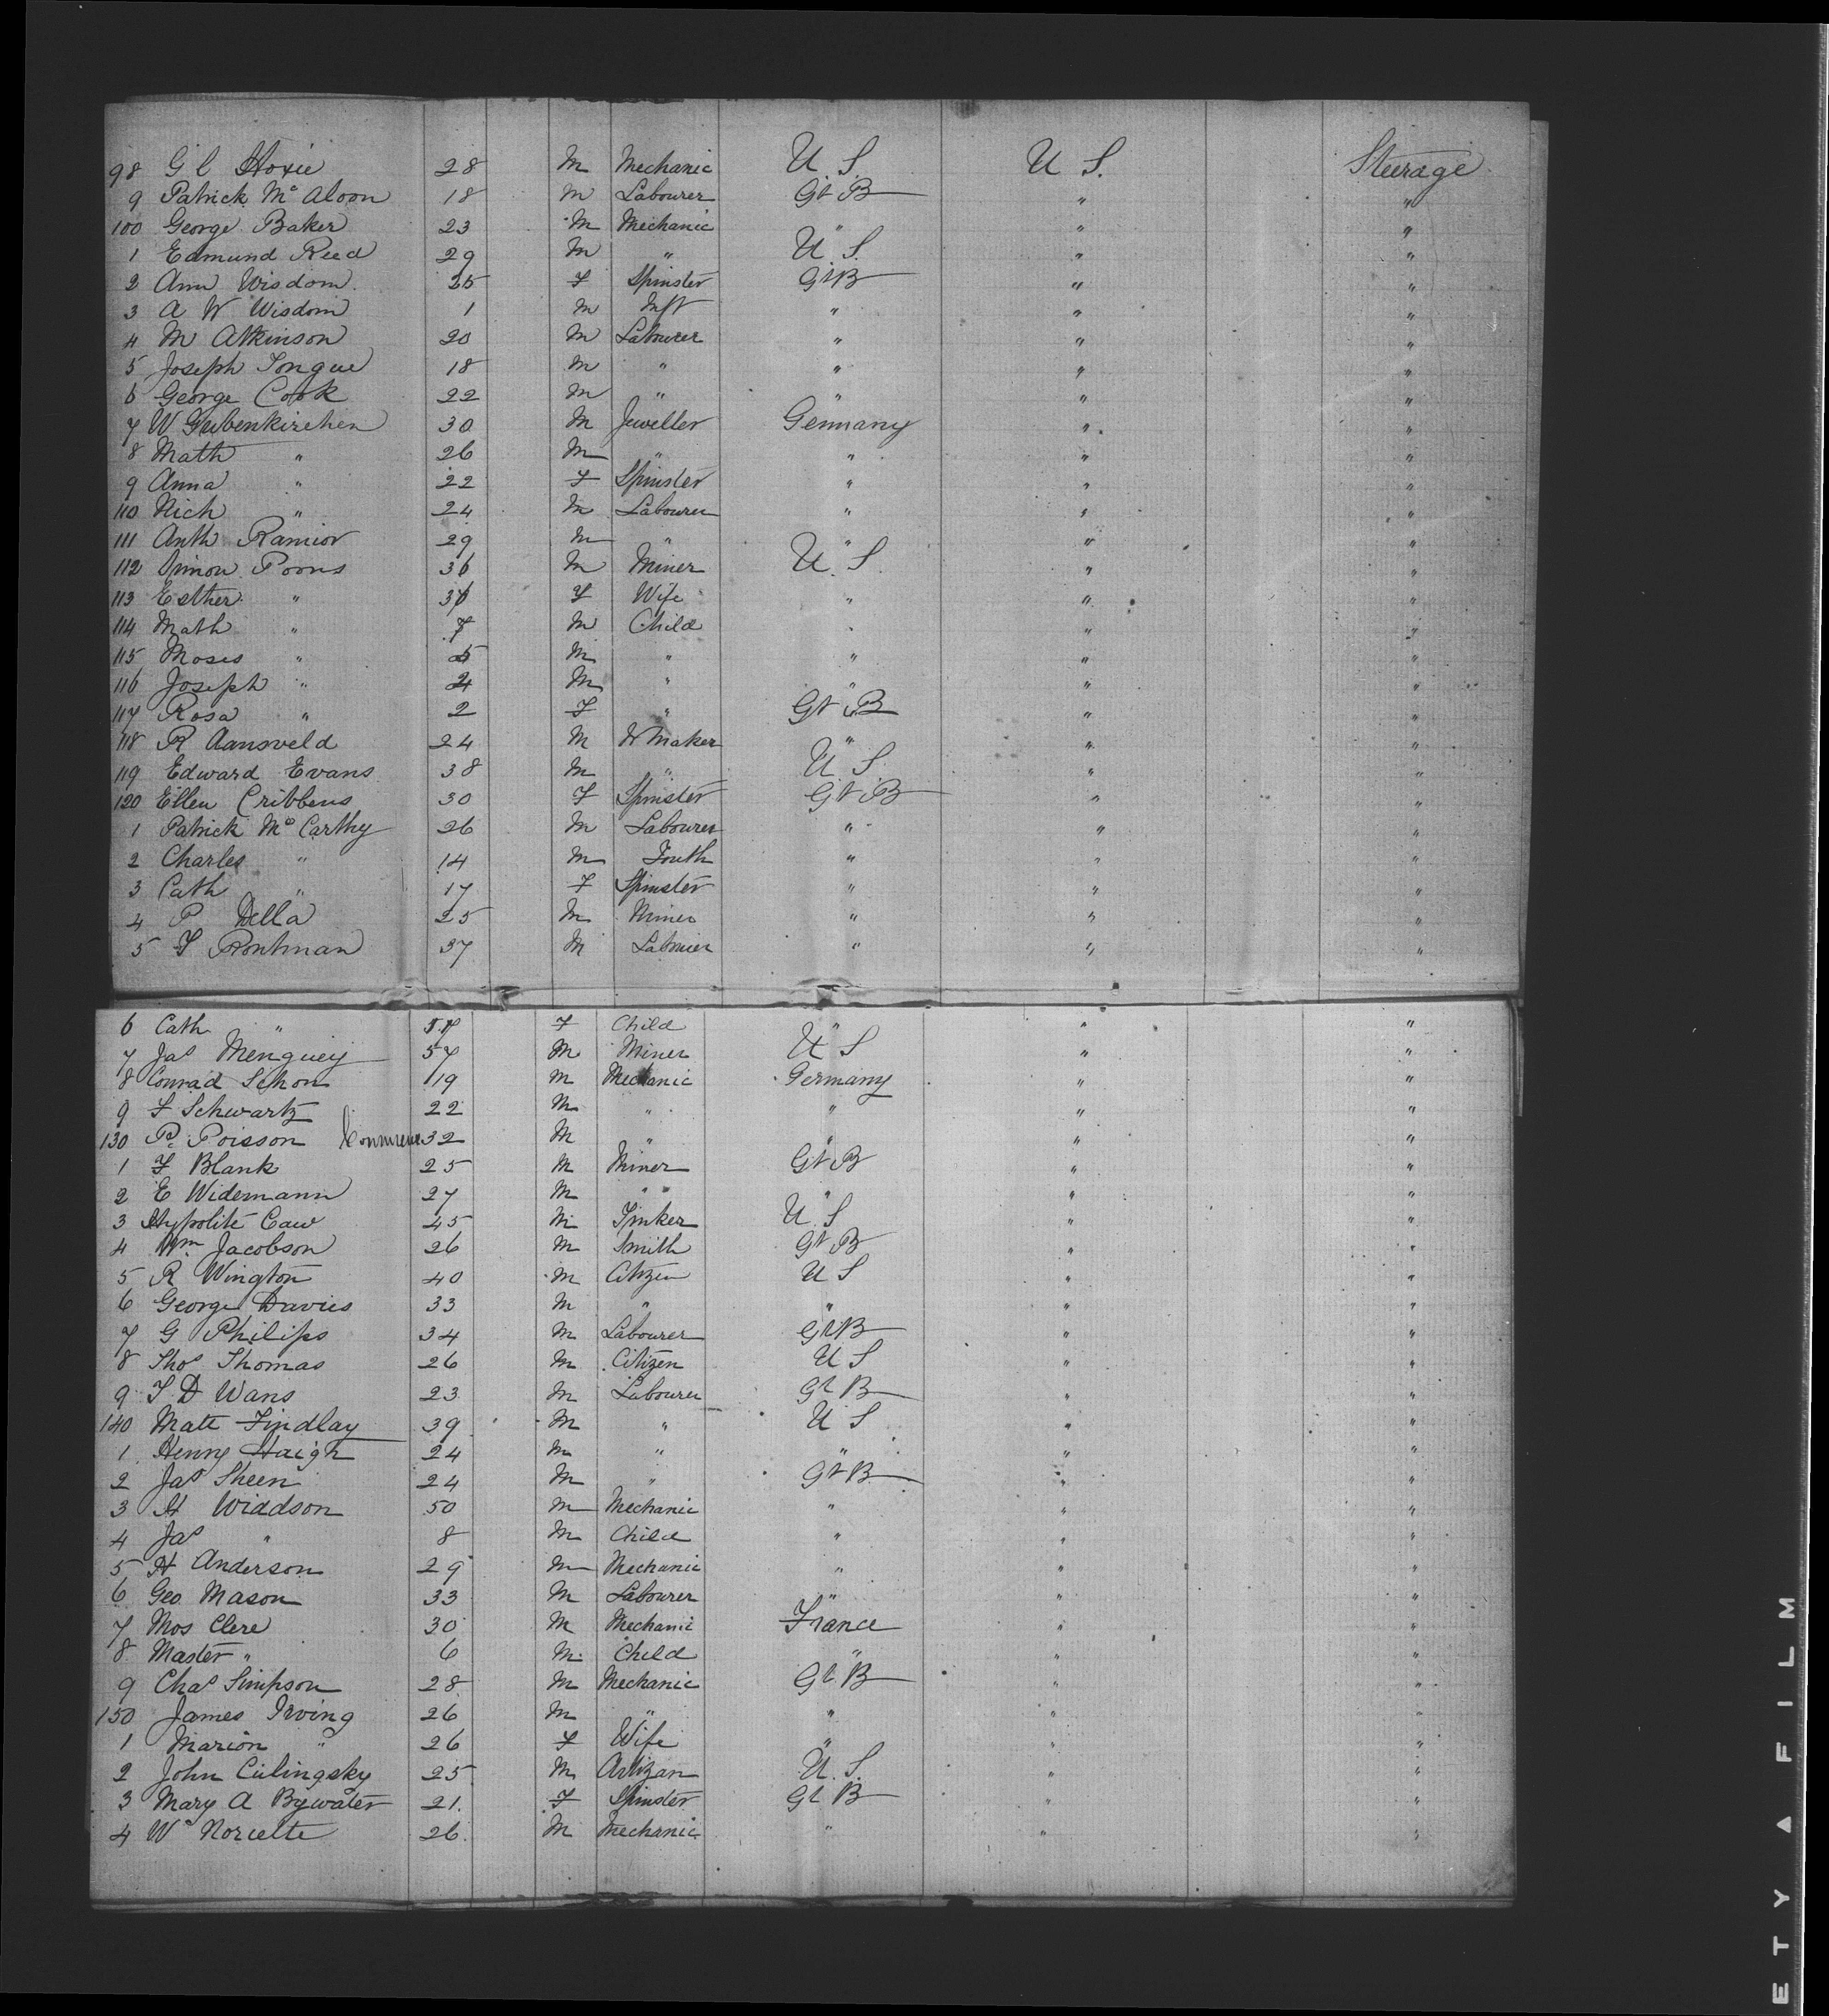 98 G C Hoxie 28 M Mechanic U. S. U S. Steerage
9 Patrick Mc Aloon 18 M Labourer Gt B " "
100 George Baker 23 M Mechanic " " "
1 Edmund Reed 29 M " U. S. " "
2 Ann Wisdom 25 F Spinster Gt B " "
3 A W Wisdom 1 M Inft " " "
4 M Atkinson 20 M Labourer " " "
5 Joseph Tongue 18 M " " " "
6 George Cook 22 M " " " "
7 W Geibenkirchen 30 M Jeweller Germany " "
8 Math " 26 M " " " "
9 Anna " 22 F Spinster " " "
110 Nich " 24 M Labourer " " "
111 Anth Ramior 29 M " " " "
112 Simon Poons 36 M Miner U. S. " "
113 Esther " 36 F Wife " " "
114 Math " 7 M Child " " "
115 Moses " 5 M " " " "
116 Joseph " 4 M " " " "
117 Rosa " 2 F " Gt B " "
118 R Aansveld 24 M W Maker " " "
119 Edward Evans 38 M " U S " "
120 Ellen Cribbens 30 F Spinster Gt B " "
1 Patrick Mc Carthy 26 M Labourer " " "
2 Charles " 14 M Youth " " "
3 Cath " 17 F Spinster " " "
4 P Della 25 M Miner " " "
5 F Prontman 37 M Labourer " " "
6 Cath " F Child " " "
7 Jas Menguey 57 M Miner U S " "
8 Conrad Schon 19 M Mechanic Germany " "
9 F Schwartz 22 M " " " "
130 P. Poisson 32 M " " " "
1 F Blank 25 M Miner Gt B " "
2 E Widemann 27 M " " " "
3 Hypolite Caw 45 M Tinker U. S " "
4 Wm Jacobson 26 M Smith Gt B " "
5 R Wington 40 M Citizen U S " "
6 George Davies 33 M " " " "
7 G Philips 34 M Labourer Gt B " "
8 Thos Thomas 26 M Citizen U S " "
9 T D Wans 23 M Labourer Gt B " "
140 Matt Findlay 39 M " U S " "
1 Henry Haigh 24 M " " " "
2 Jas Sheen 24 M " Gt B " "
3 H Widdson 50 M Mechanic " " "
4 Jas " 8 M Child " " "
5 H Anderson 29 M Mechanic " " "
6 Geo Mason 33 M Labourer " " "
7 Mos Clere 30 M Mechanic France " "
8 Master " 6 M Child " " "
9 Chas Simpson 28 M Mechanic Gt B " "
150 James Irving 26 M " " " "
1 Marion " 26 F Wife " " "
2 John Culingsky 25 M Artizan U. S. " "
3 Mary A Bywater 21 F Spinster Gt B " "
4 W Norcette 26 M Mechanic " " "
ETY ▲ FILM